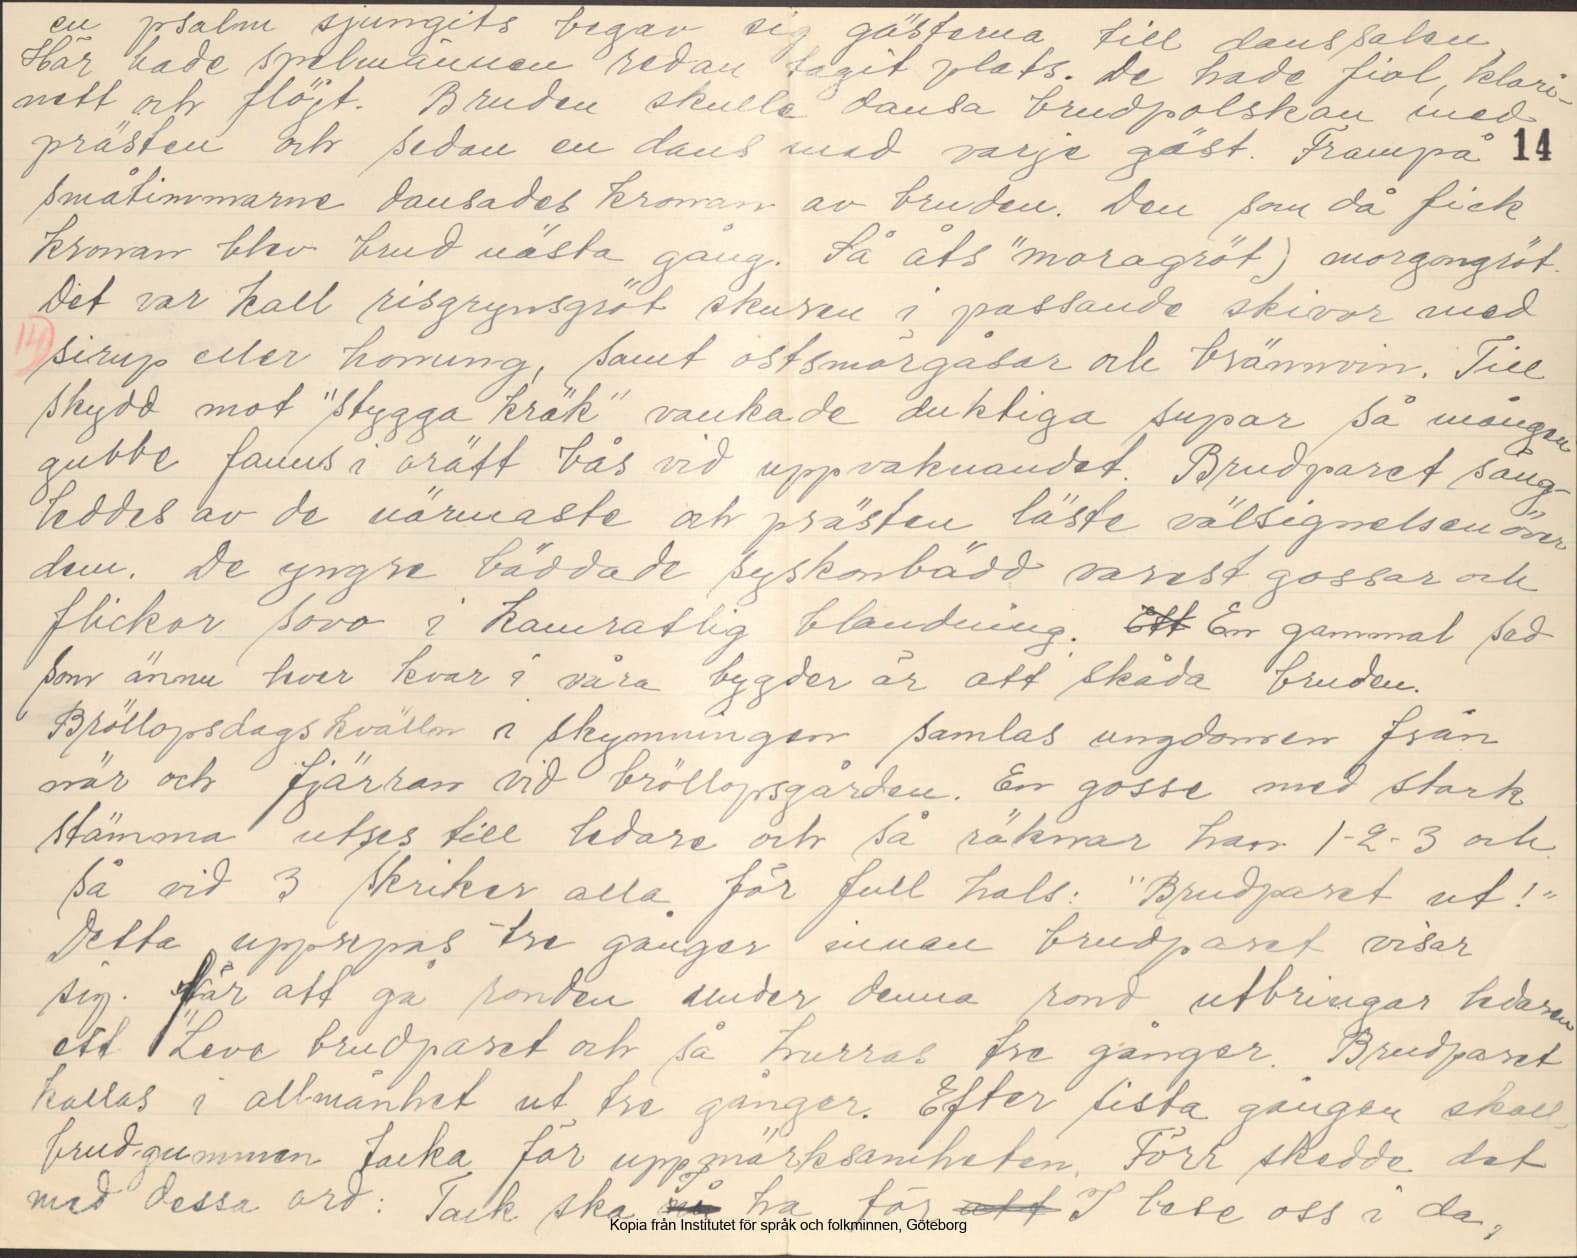 en psalm sjungits begav sig gästerna till danssalen.
Här hade spelmännen redan tagit plats. De hade fiol, klari-
nett och flöjt. Bruden skulle dansa brudpolskan med
prästen och sedan en dans med varje gäst. Frampå 14
småtimmarne dansades kronan av bruden. Den som då fick
kronan blev brud nästa gång. Så åts "moragröt) morgongröt.
Det var kall risgrynsgröt skuren i passande skivor med
14) sirup eller honung, samt ostsmörgåsar och brännvin. Till
skydd mot "stygga kräk" vankade duktiga supar så mången
gubbe fanns i orätt bås vid uppvaknandet. Brudparet säng-
leddes av de närmaste och prästen läste välsignelsen över
dem. De yngre bäddade syskonbädd varest gossar och
flickor sovo i kamratlig blandning. Ett En gammal sed
som ännu lever kvar i våra bygder är att skåda bruden.
Bröllopsdagskvälln i skymningen samlas ungdomen från
när och fjärran vid bröllopsgården. En gosse med stark
stämma utses till ledare och så räknar han 1-2-3 och
så vid 3 skriker alla för full hals: "Brudparet ut!"
Detta upprepas tre gånger innan brudparet visar
sig. för att gå ronden under denna rond utbringar ledaren
ett "Leve brudparet och så hurras tre gånger. Brudparet
kallas i allmänhet ut tre gånger. Efter sista gången skall
brudgummen tacka för uppmärksamheten. Förr skedde det
med dessa ord: Tack ska I ha för att I bese oss i da,
Kopia från Institutet för språk och folkminnen, Göteborg